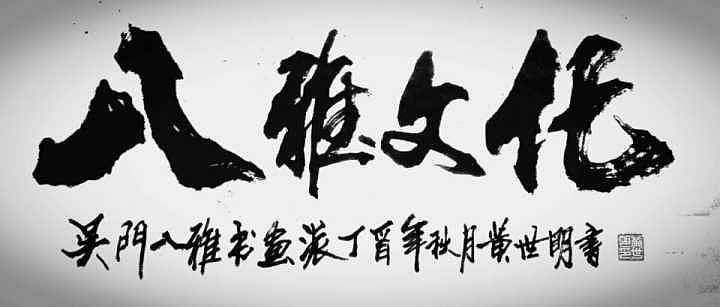 八雅文化
吴門八雅书画派丁酉年秋月黄世明書